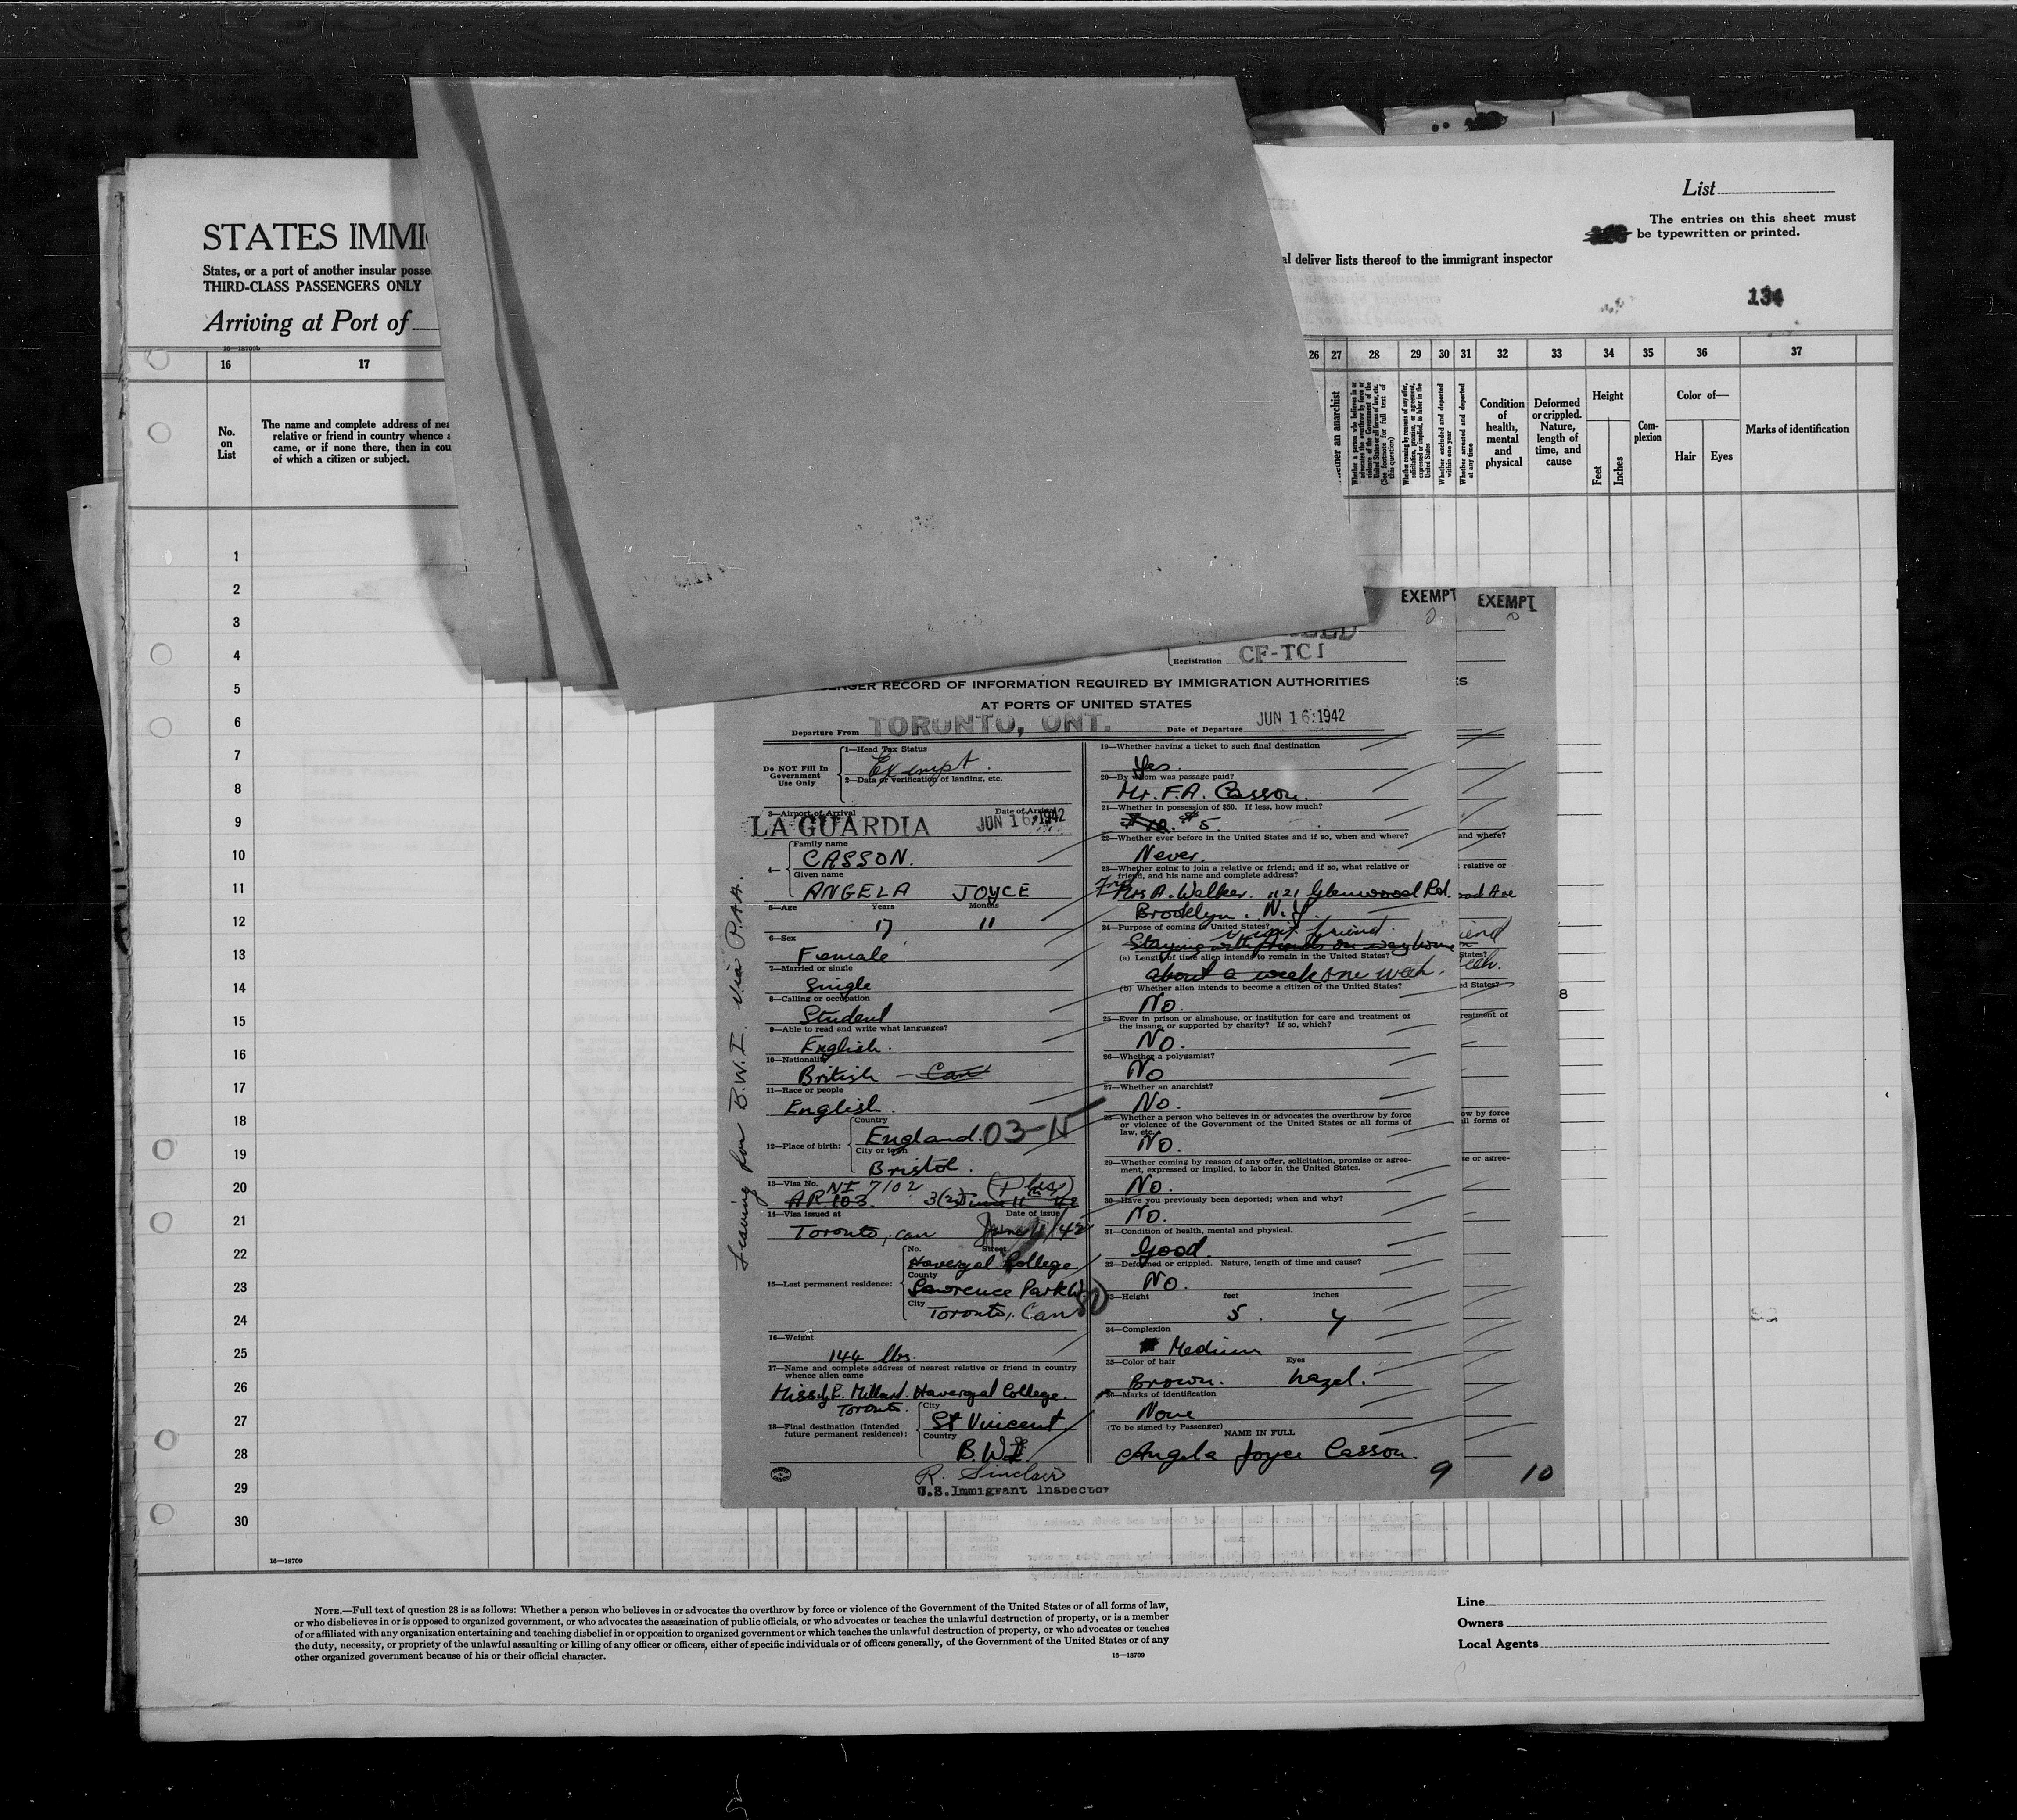 List
The entries on this sheet must
be typewritten or printed.
STATES IMMI
States, or a port of another insular posse
THIRD-CLASS PASSENGERS ONLY
al deliver lists thereof to the immigrant inspector
134
Arriving at Port of
16 17 26 27 28 29 30 31 32 33 34 35 36 37
No.
on
List
The name and complete address of nea
relative or friend in country whence a
came, or if none there, then in cou
of which a citizen or subject.
ether an anarchist
Whether a person who believes in or
advocates the overthrow by force or
violence of the Government of the
United States or all forms of law, etc.
(See footnote for full text of
this question)
Whether coming by reasons of any offer,
solicitation, promise, or agreement,
expressed or implied, to labor in the
United States
Whether excluded and deported
within one year
Whether arrested and deported
at any time
Condition
of
health,
mental
and
physical
Deformed
or crippled.
Nature,
length of
time, and
cause
Height
Feet
Inches
Com-
plexion
Color of—
Hair Eyes
Marks of identification
1
2
3
4
5
6
7
8
9
10
11
12
13
14
15
16
17
18
19
20
21
22
23
24
25
26
27
28
29
30
EXEMPT EXEMPT
Registration CF-TCI
ENGER RECORD OF INFORMATION REQUIRED BY IMMIGRATION AUTHORITIES
AT PORTS OF UNITED STATES
Departure From TORONTO, ONT. Date of Departure JUN 16 1942
Do NOT Fill In
Government
Use Only
1—Head Tax Status
Exempt.
2—Data of verification of landing, etc.
3—Airport of Arrival Date of Arrival
LA GUARDIA JUN 16 1942
Family name
CASSON.
Given name
ANGELA JOYCE
5—Age Years Months
17 11
6—Sex
Female
7—Married or single
Single
8—Calling or occupation
Student
9—Able to read and write what languages?
English.
10—Nationality
British — Can
11—Race or people
English.
12—Place of birth:
Country
England. 03-N
City or town
Bristol.
13—Visa No. NI 7102
AR. 103. 3(2) June 11 42
14—Visa issued at Date of issue
Toronto, Can June 11/42
15—Last permanent residence:
No. Street
Havergal College
County
Lawrence Park W.
City
Toronto, Can
16—Weight
144 lbs.
17—Name and complete address of nearest relative or friend in country
whence alien came
Havergal College.
Toronto.
18—Final destination (Intended
future permanent residence):
City
St Vincent
Country
B.W.I
R. Sinclair
U.S. Immigrant Inspector
Leaving for B.W.I. via P.A.A.
19—Whether having a ticket to such final destination
Yes.
20—By whom was passage paid?
Mr. F.A. Casson.
21—Whether in possession of $50. If less, how much?
$10. $5.
22—Whether ever before in the United States and if so, when and where?
Never.
23—Whether going to join a relative or friend; and if so, what relative or
friend, and his name and complete address?
Mrs A. Walker. 1121 Glenwood Rd.
Brooklyn. N.Y.
24—Purpose of coming to United States?
visit friend.
Staying with friends on way home
(a) Length of time alien intends to remain in the United States?
about a week one week.
(b) Whether alien intends to become a citizen of the United States?
No.
25—Ever in prison or almshouse, or institution for care and treatment of
the insane, or supported by charity? If so, which?
No.
26—Whether a polygamist?
No
27—Whether an anarchist?
No.
28—Whether a person who believes in or advocates the overthrow by force
or violence of the Government of the United States or all forms of
law, etc.
No.
29—Whether coming by reason of any offer, solicitation, promise or agree-
ment, expressed or implied, to labor in the United States.
No.
30—Have you previously been deported; when and why?
No.
31—Condition of health, mental and physical.
Good.
32—Deformed or crippled. Nature, length of time and cause?
No.
33—Height feet inches
5. 4
34—Complexion
Medium
35—Color of hair Eyes
Brown. hazel.
36—Marks of identification
None
(To be signed by Passenger)
NAME IN FULL
Angela Joyce Casson.
9
ES
and where?
relative or
od Ave
iend
States?
ed States?
reatment of
ow by force
ll forms of
se or agree-
10
8
16—18709
NOTE.—Full text of question 28 is as follows: Whether a person who believes in or advocates the overthrow by force or violence of the Government of the United States or of all forms of law,
or who disbelieves in or is opposed to organized government, or who advocates the assassination of public officials, or who advocates or teaches the unlawful destruction of property, or is a member
of or affiliated with any organization entertaining and teaching disbelief in or opposition to organized government or which teaches the unlawful destruction of property, or who advocates or teaches
the duty, necessity, or propriety of the unlawful assaulting or killing of any officer or officers, either of specific individuals or of officers generally, of the Government of the United States or of any
other organized government because of his or their official character.
16—18709
Line
Owners
Local Agents